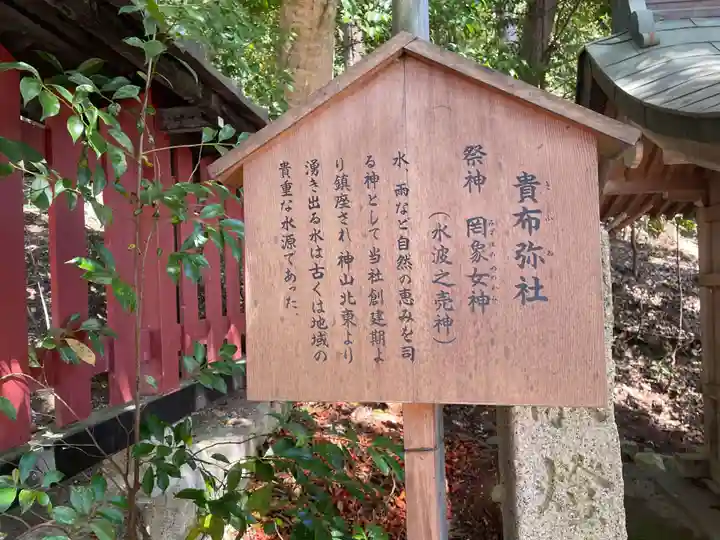 貴布弥社
きふね
祭神　罔象女神
みずはのめのかみ
（水波之売神）
水、雨など自然の恵みを司
る神として当社創建期よ
り鎮座され、神山北東より
湧き出る水は古くは地域の
貴重な水源であった。